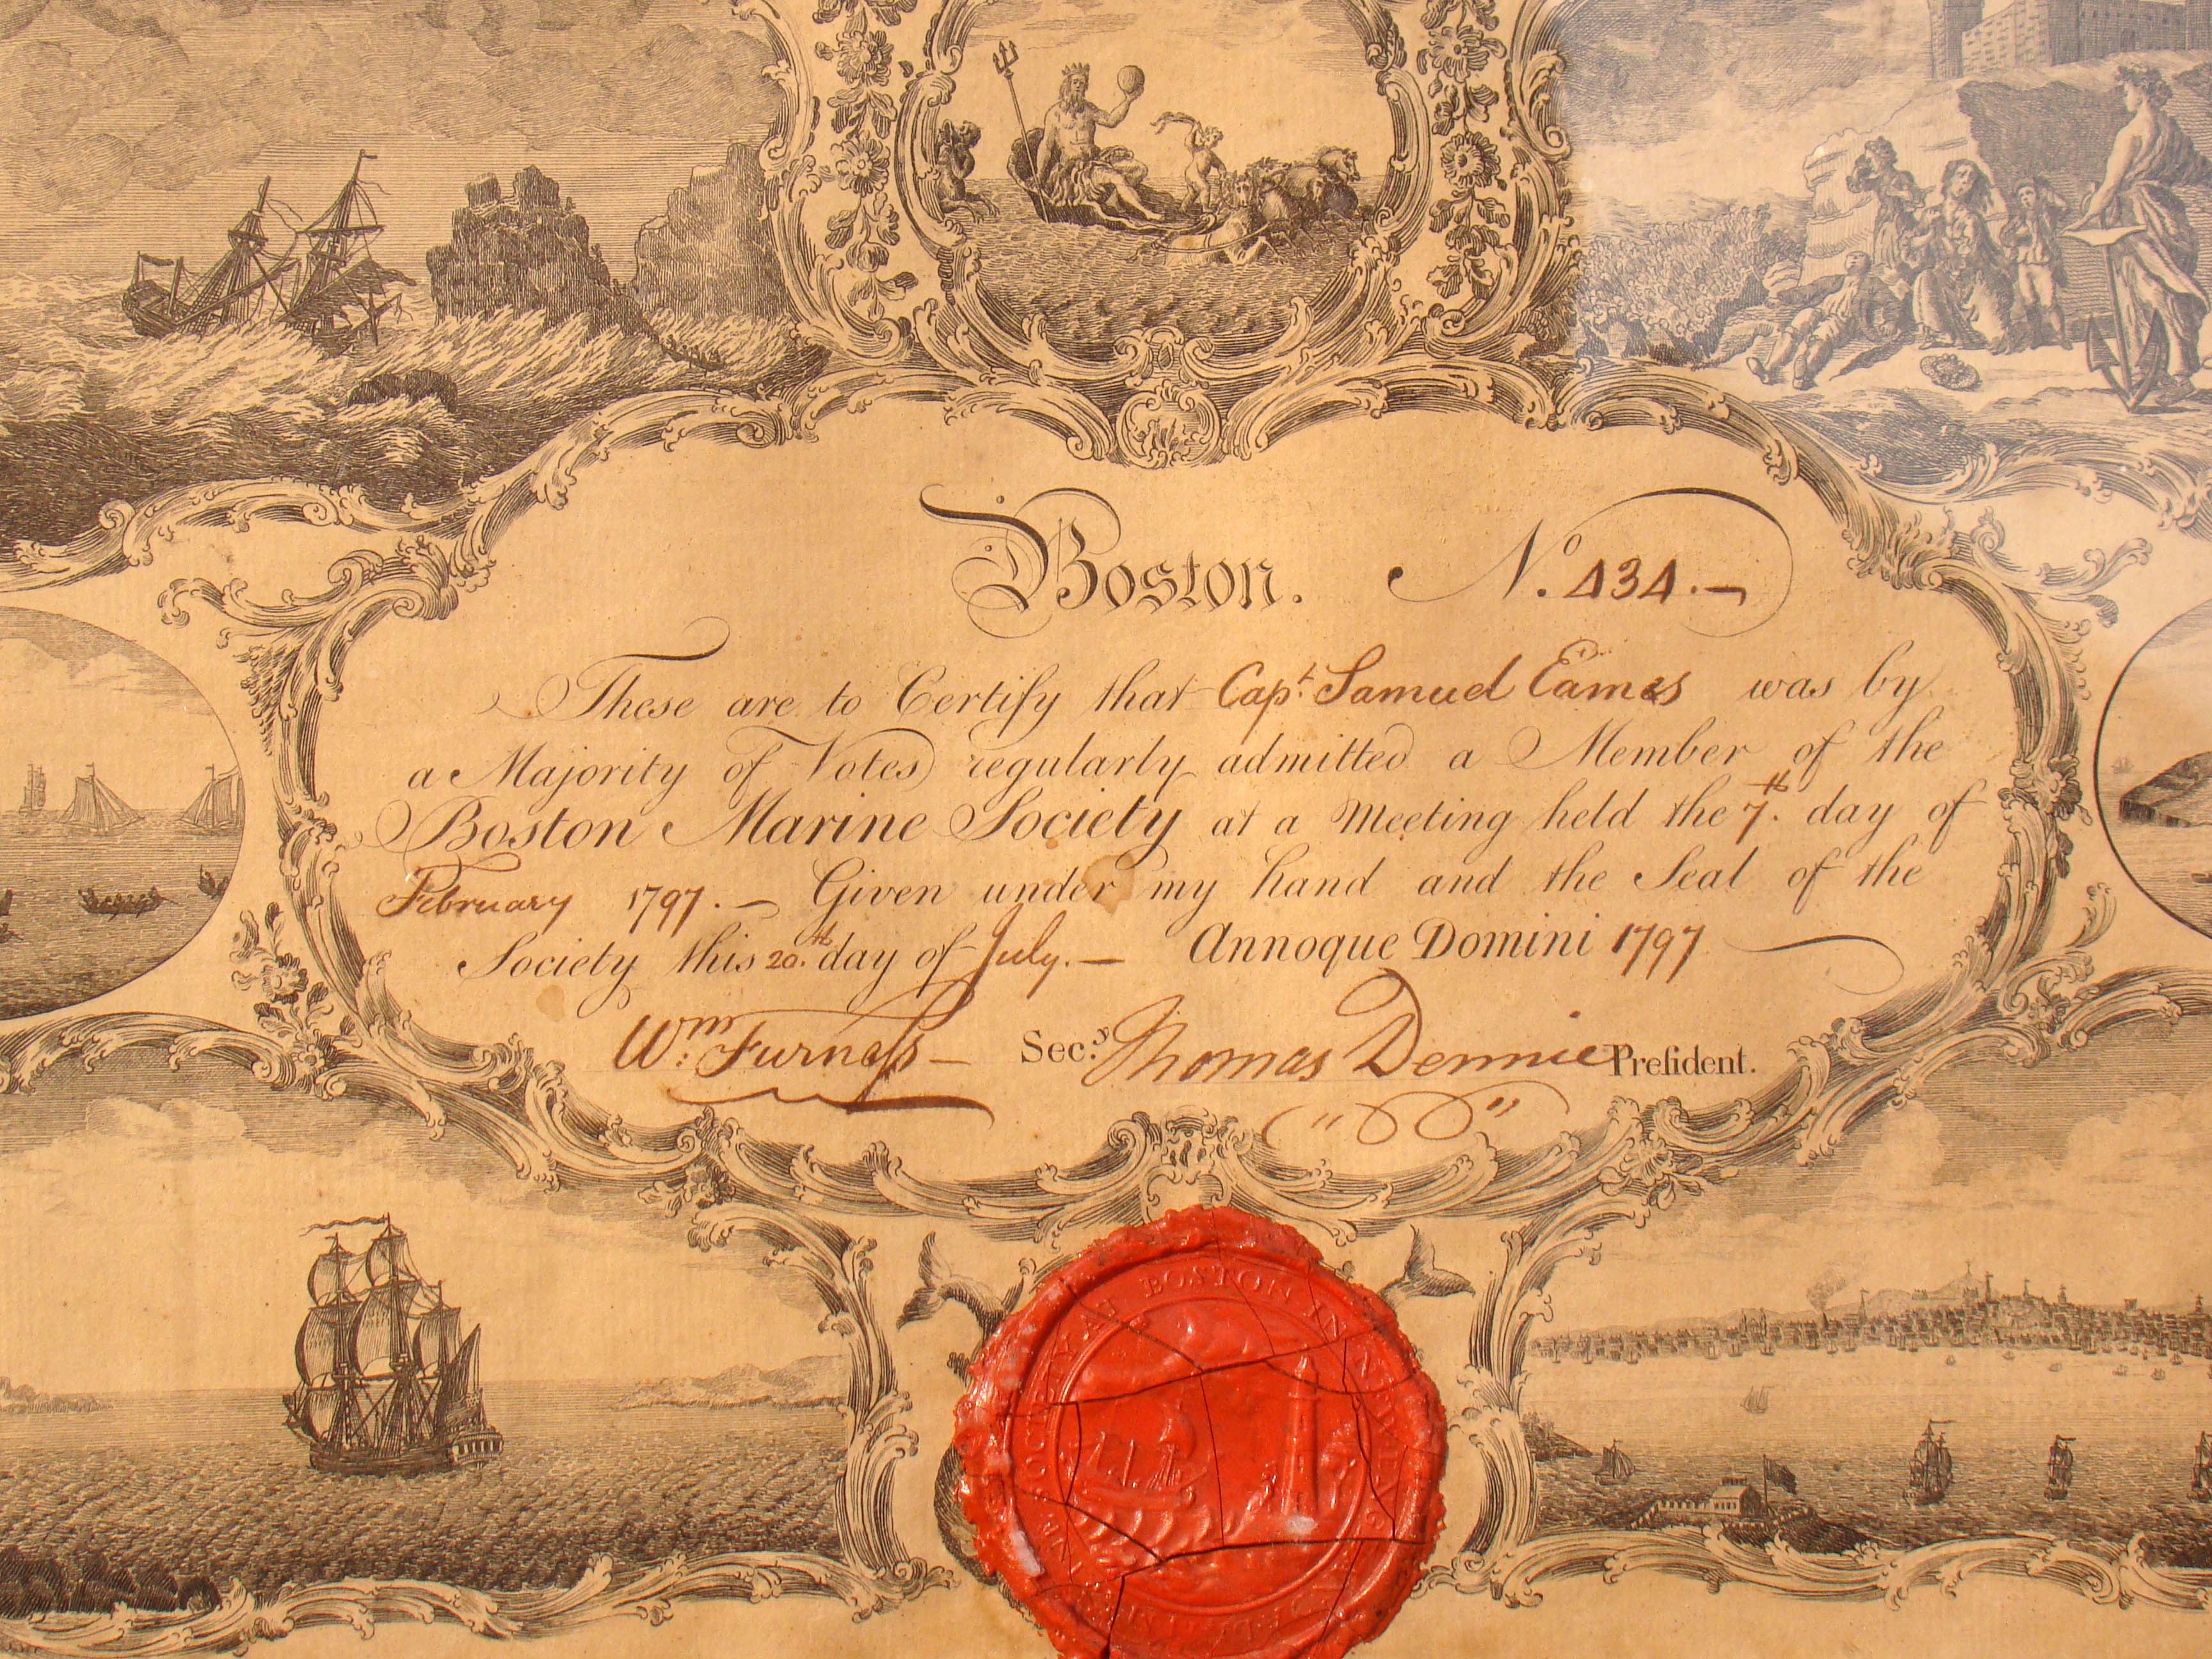 Boston. No. 434.—
These are to Certify that Capt. Samuel Eames was by
a Majority of Votes regularly admitted a Member of the
Boston Marine Society at a Meeting held the 7th. day of
February 1797.— Given under my hand and the Seal of the
Society this 20.th day of July.— Annoque Domini 1797
Wm. Furneſs— Sec.y Thomas Dennie Preſident.
SOCIETY AT BOSTON IN NEW